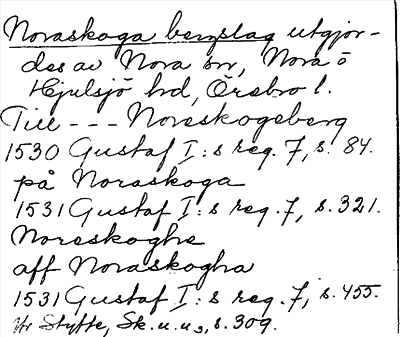 Noraskoga bergslag utgjor-
des av Nora sn, Nora o
Hjulsjö hd, Örebro l.
Till --- Noreskogeberg
1530 Gustaf I:s reg. 7, s. 84.
på Noraskoga
1531 Gustaf I:s reg. 7, s. 321.
Noreskoghe
aff Noraskogha
1531 Gustaf I:s reg. 7, s. 455.
Styffe, Sk.u.u3, s. 309.